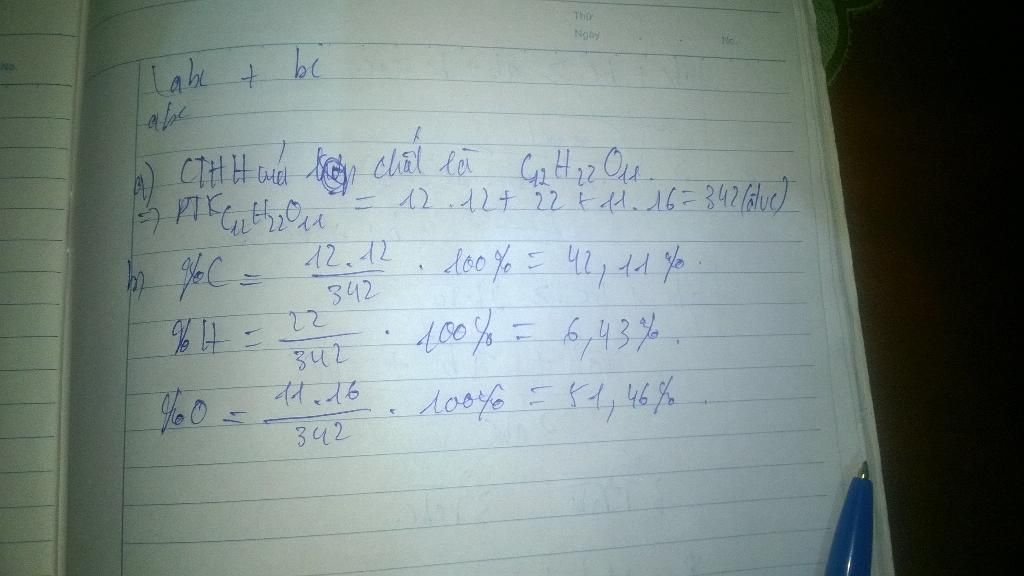 Thứ
Ngày
No.
No.
abc + bc
abc
a) CTHH của hợp chất là C12H22O11.
=> PTK C12H22O11 = 12 . 12 + 22 + 11 . 16 = 342 (đvc)
b) %C = 12.12/342 . 100% = 42,11%.
%H = 22/342 . 100% = 6,43%.
%O = 11.16/342 . 100% = 51,46%.